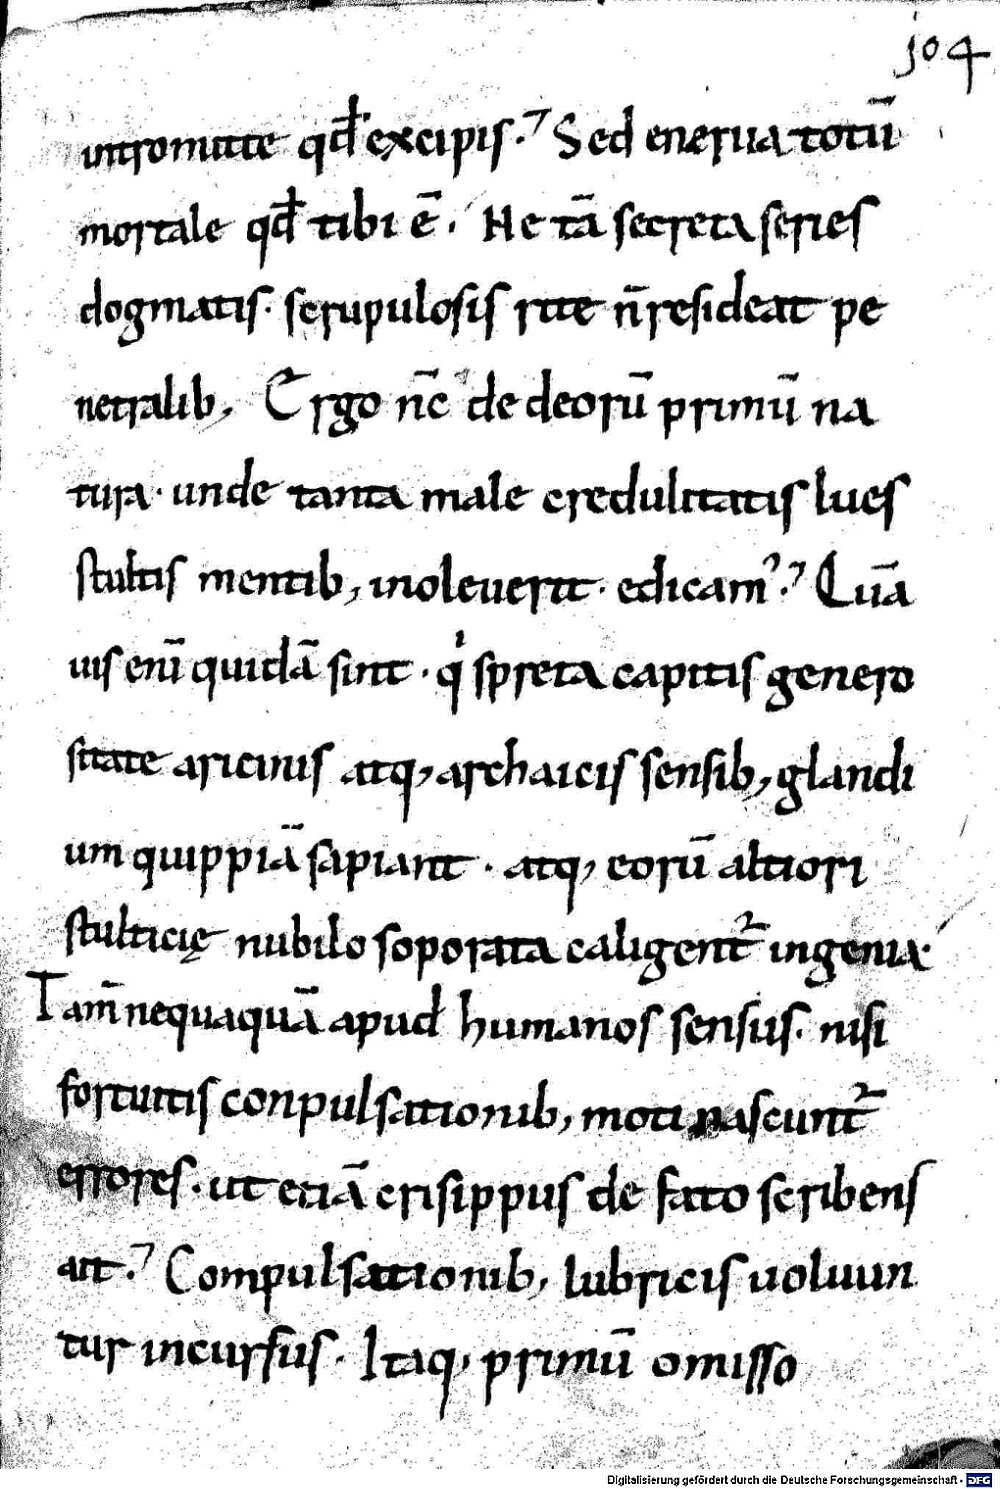 104
intromitte qđ excipis. Sed enerua totū
mortale qđ tibi ē. Ne tā secreta series
dogmatis. scrupulosis rite n̄ resideat pe
netralib; Ergo nc̄ de deorū primū na
tura. unde tanta male credulitatis lues
stultis mentib; inoleuerit. edicam᾽? Quā
uis enī quidā sint. qͥ spreta capitis genero
sitate aricinis atq; archaicis sensib; glandi
um quippiā sapiant. atq; eorū altiori
stulticię nubilo soporata caligent᷑ ingenia.
Tam̄ nequaquā apud humanos sensus. nisi
fortuitis conpulsationib; moti nascunt᷑
errores. ut etiā crisippus de fato scribens
ait? Compulsationib; lubricis uoluun
tur incursus. Itaq; primū omisso
Digitalisierung gefördert durch die Deutsche Forschungsgemeinschaft - DFG